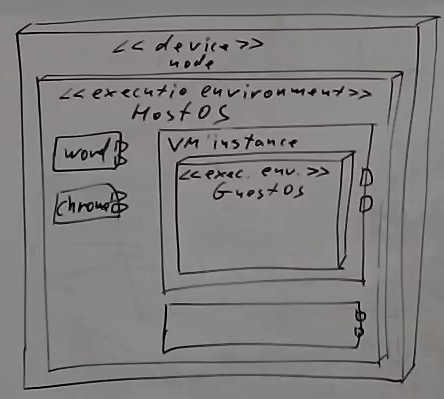 << device >>
node
<<executio environment>>
HostOS
word
VM instance
<<exec. env. >>
GuestOS
chrome